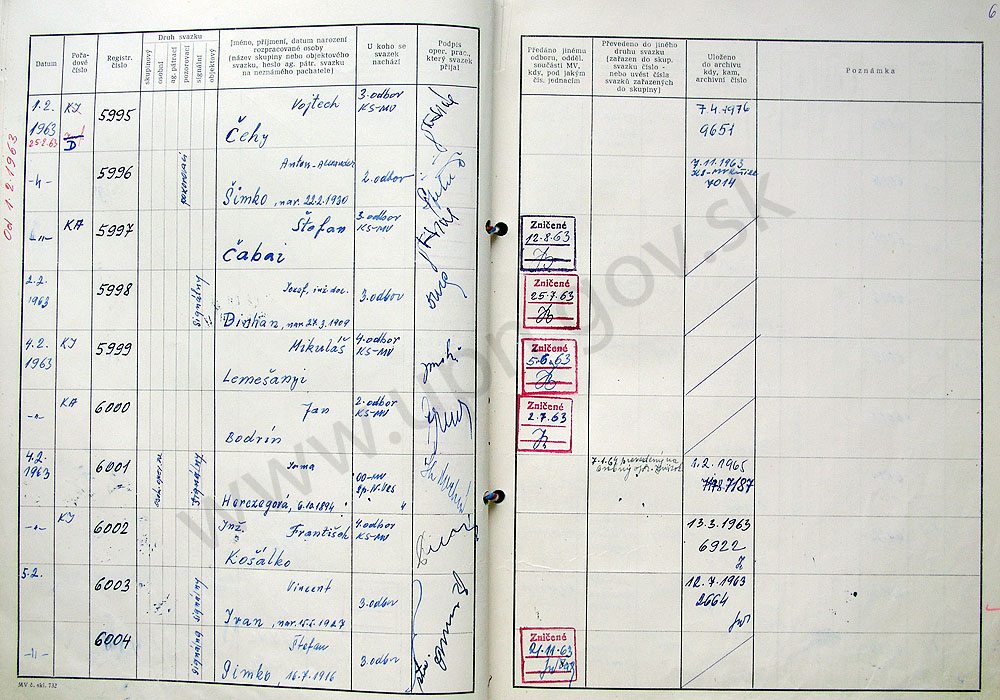 6
Od 1.2.1963
Datum
Pořa-
dové
číslo
Registr.
číslo
Druh svazku
skupinový
osobní
ag. pátrací
pozorovací
signální
objektový
Jméno, příjmení, datum narození
rozpracované osoby
(název skupiny nebo objektového
svazku, heslo ag. pátr. svazku
na neznámého pachatele)
U koho se
svazek
nachází
Podpis
oper. prac.,
který svazek
přijal
Předáno jinému
odboru, odděl.
součásti MV,
kdy, pod jakým
čís. jednacím
Převedeno do jiného
druhu svazku
(zařazen do skup.
svazku číslo -
nebo uvést čísla
svazků zařazených
do skupiny)
Uloženo
do archivu
kdy, kam,
archivní číslo
Poznámka
1.2.
1963
25.2.63
KI
D
5995
Vojtech
Čehy
3.odbor
KS-MV
7.4.1976
9651
-"-
5996
pozorovací
Anton-Alexander
Šimko, nar. 22.2.1930
2.odbor
7.11.1963
7014
-"-
KA
5997
Štefan
Čabai
3.odbor
KS-MV
Zničené
12.8.63
2.2.
1963
5998
signálny
Jozef, inž. doc.
Dirhan, nar. 27.3.1909
3.odbor
Zničené
25.7.63
4.2.
1963
KI
5999
Mikuláš
Lemešanyi
4.odbor
KS-MV
Zničené
5.6.63
-"-
KA
6000
Jan
Bodrín
2.odbor
KS-MV
Zničené
2.7.63
4.2.
1963
6001
signálny
Irma
Herczegová, 6.10.1894
OO-MV
1.2.1965
-"-
KI
6002
Inž. František
Košálko
4.odbor
KS-MV
13.3.1963
6922
5.2.
6003
signálny
Vincent
Ivan, nar. 15.6.1927
3.odbor
12.7.1963
2664
-"-
6004
signálna
Štefan
Gimko, 16.7.1916
3.odbor
Zničené
21.11.63
MV č. skl. 732
www.upn.gov.sk